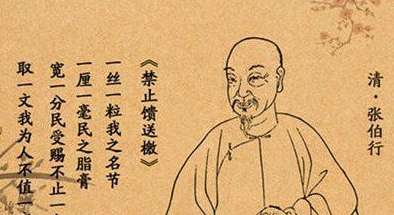 清·张伯行
《禁止馈送檄》
一丝一粒我之名节
一厘一毫民之脂膏
宽一分民受赐不止一
取一文我为人不值一